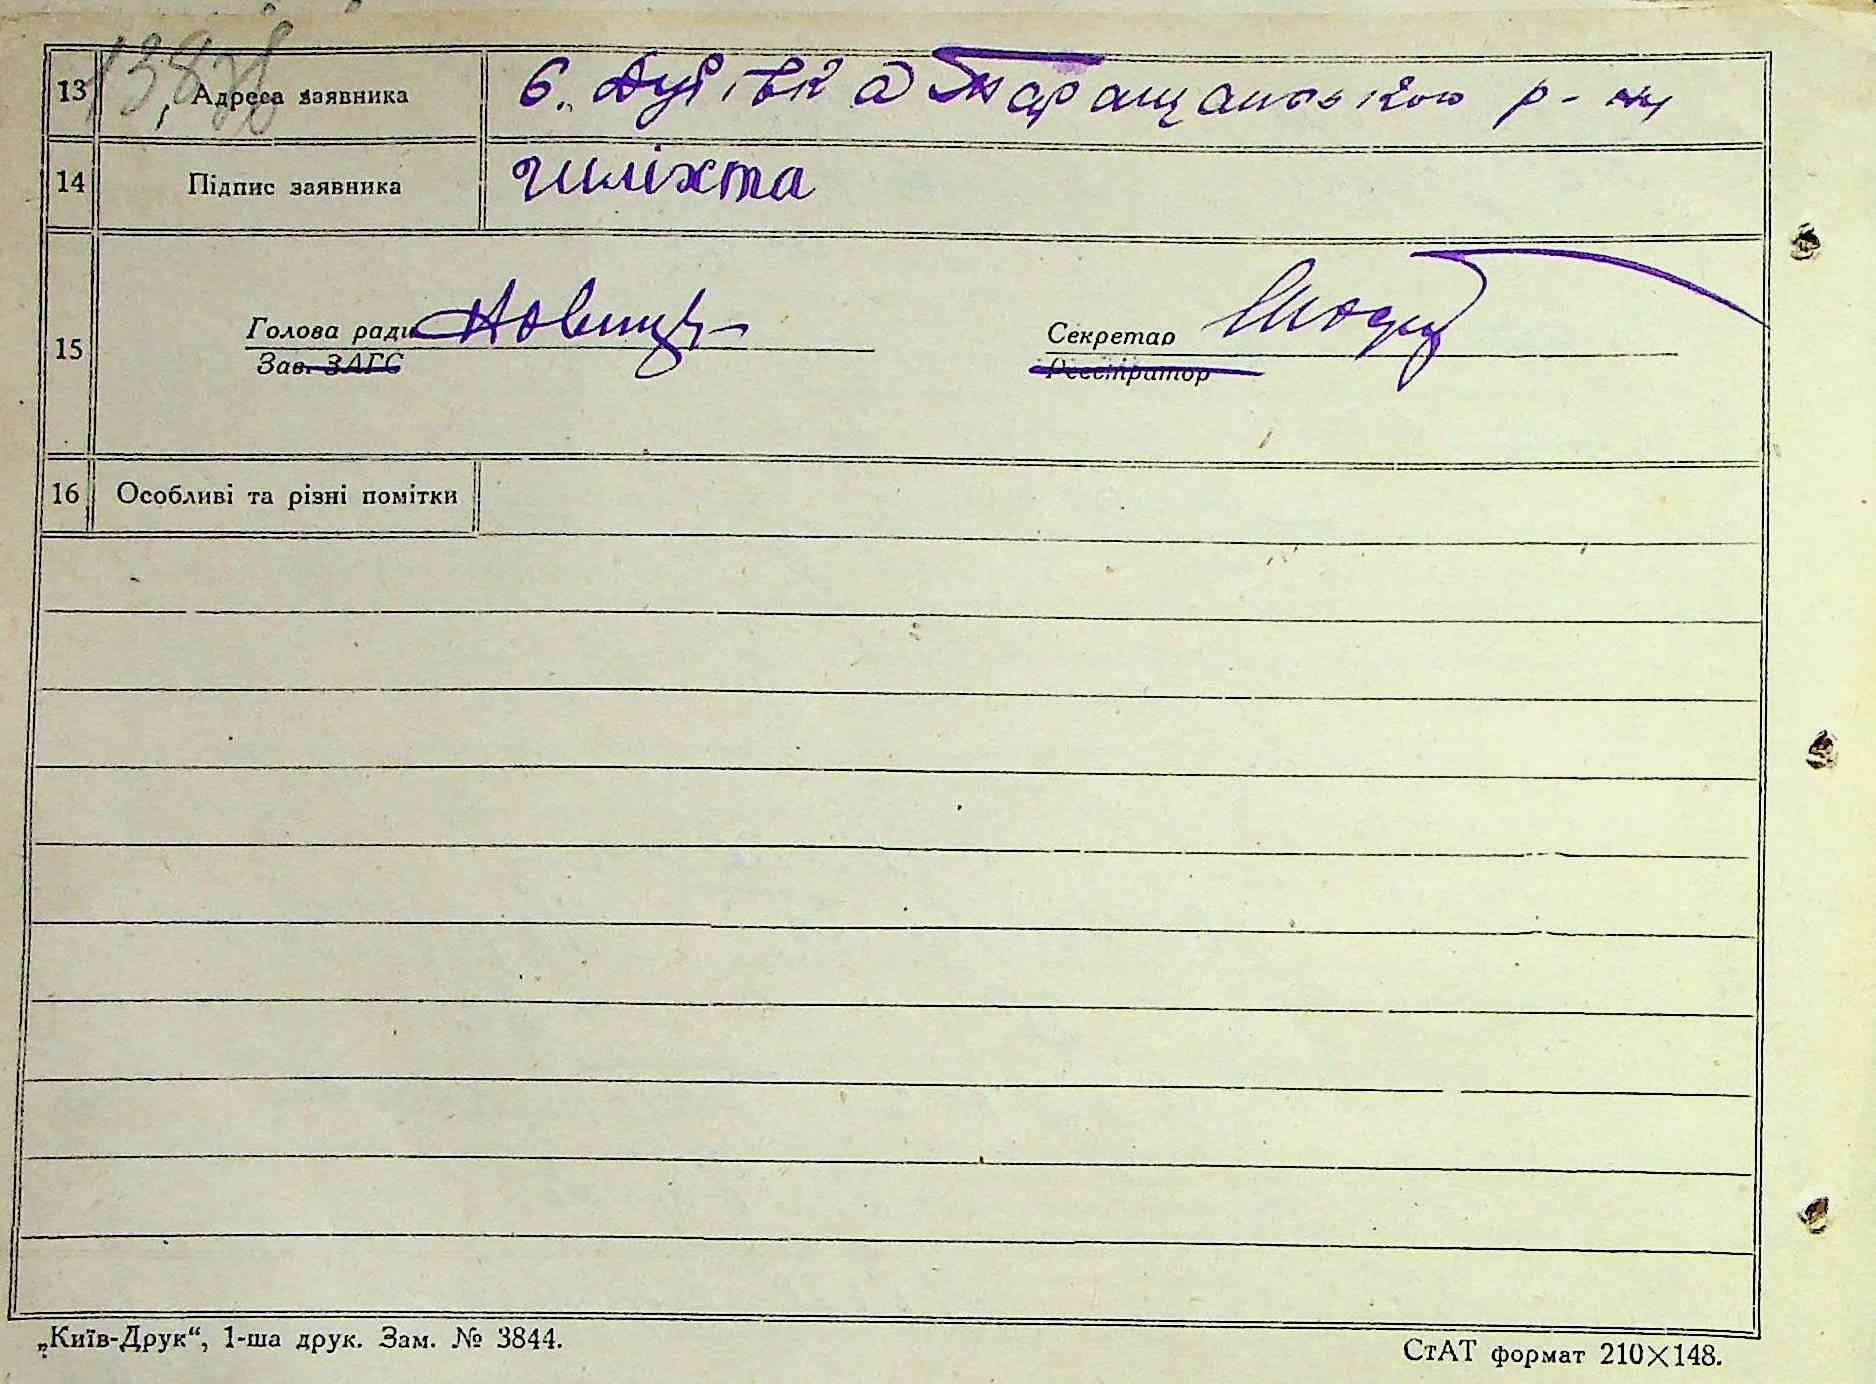 13 Адреса заявника с. Дубівка Таращанського р-ну
14 Підпис заявника Шліхта
15 Голова ради Новиц Секретар
Зав. ЗАГС Реєстратор
16 Особливі та різні помітки
„Київ-Друк“, 1-ша друк. Зам. № 3844.
СтАТ формат 210×148.